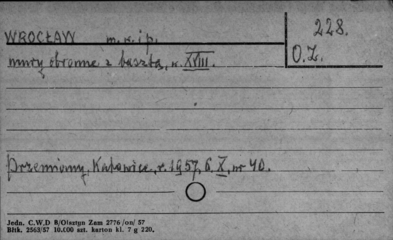 WROCŁAW m. w. i p. 228.
O.Z.
mury obronne z basztą, w. XVIII.
Przemiany, Katowice, r. 1957, 6. X, nr 40.
Jedn. C.W.D B/Olsztyn Zam 2776 /on/ 57
Błtk. 2563/57 10.000 szt. karton kl. 7 g 220.